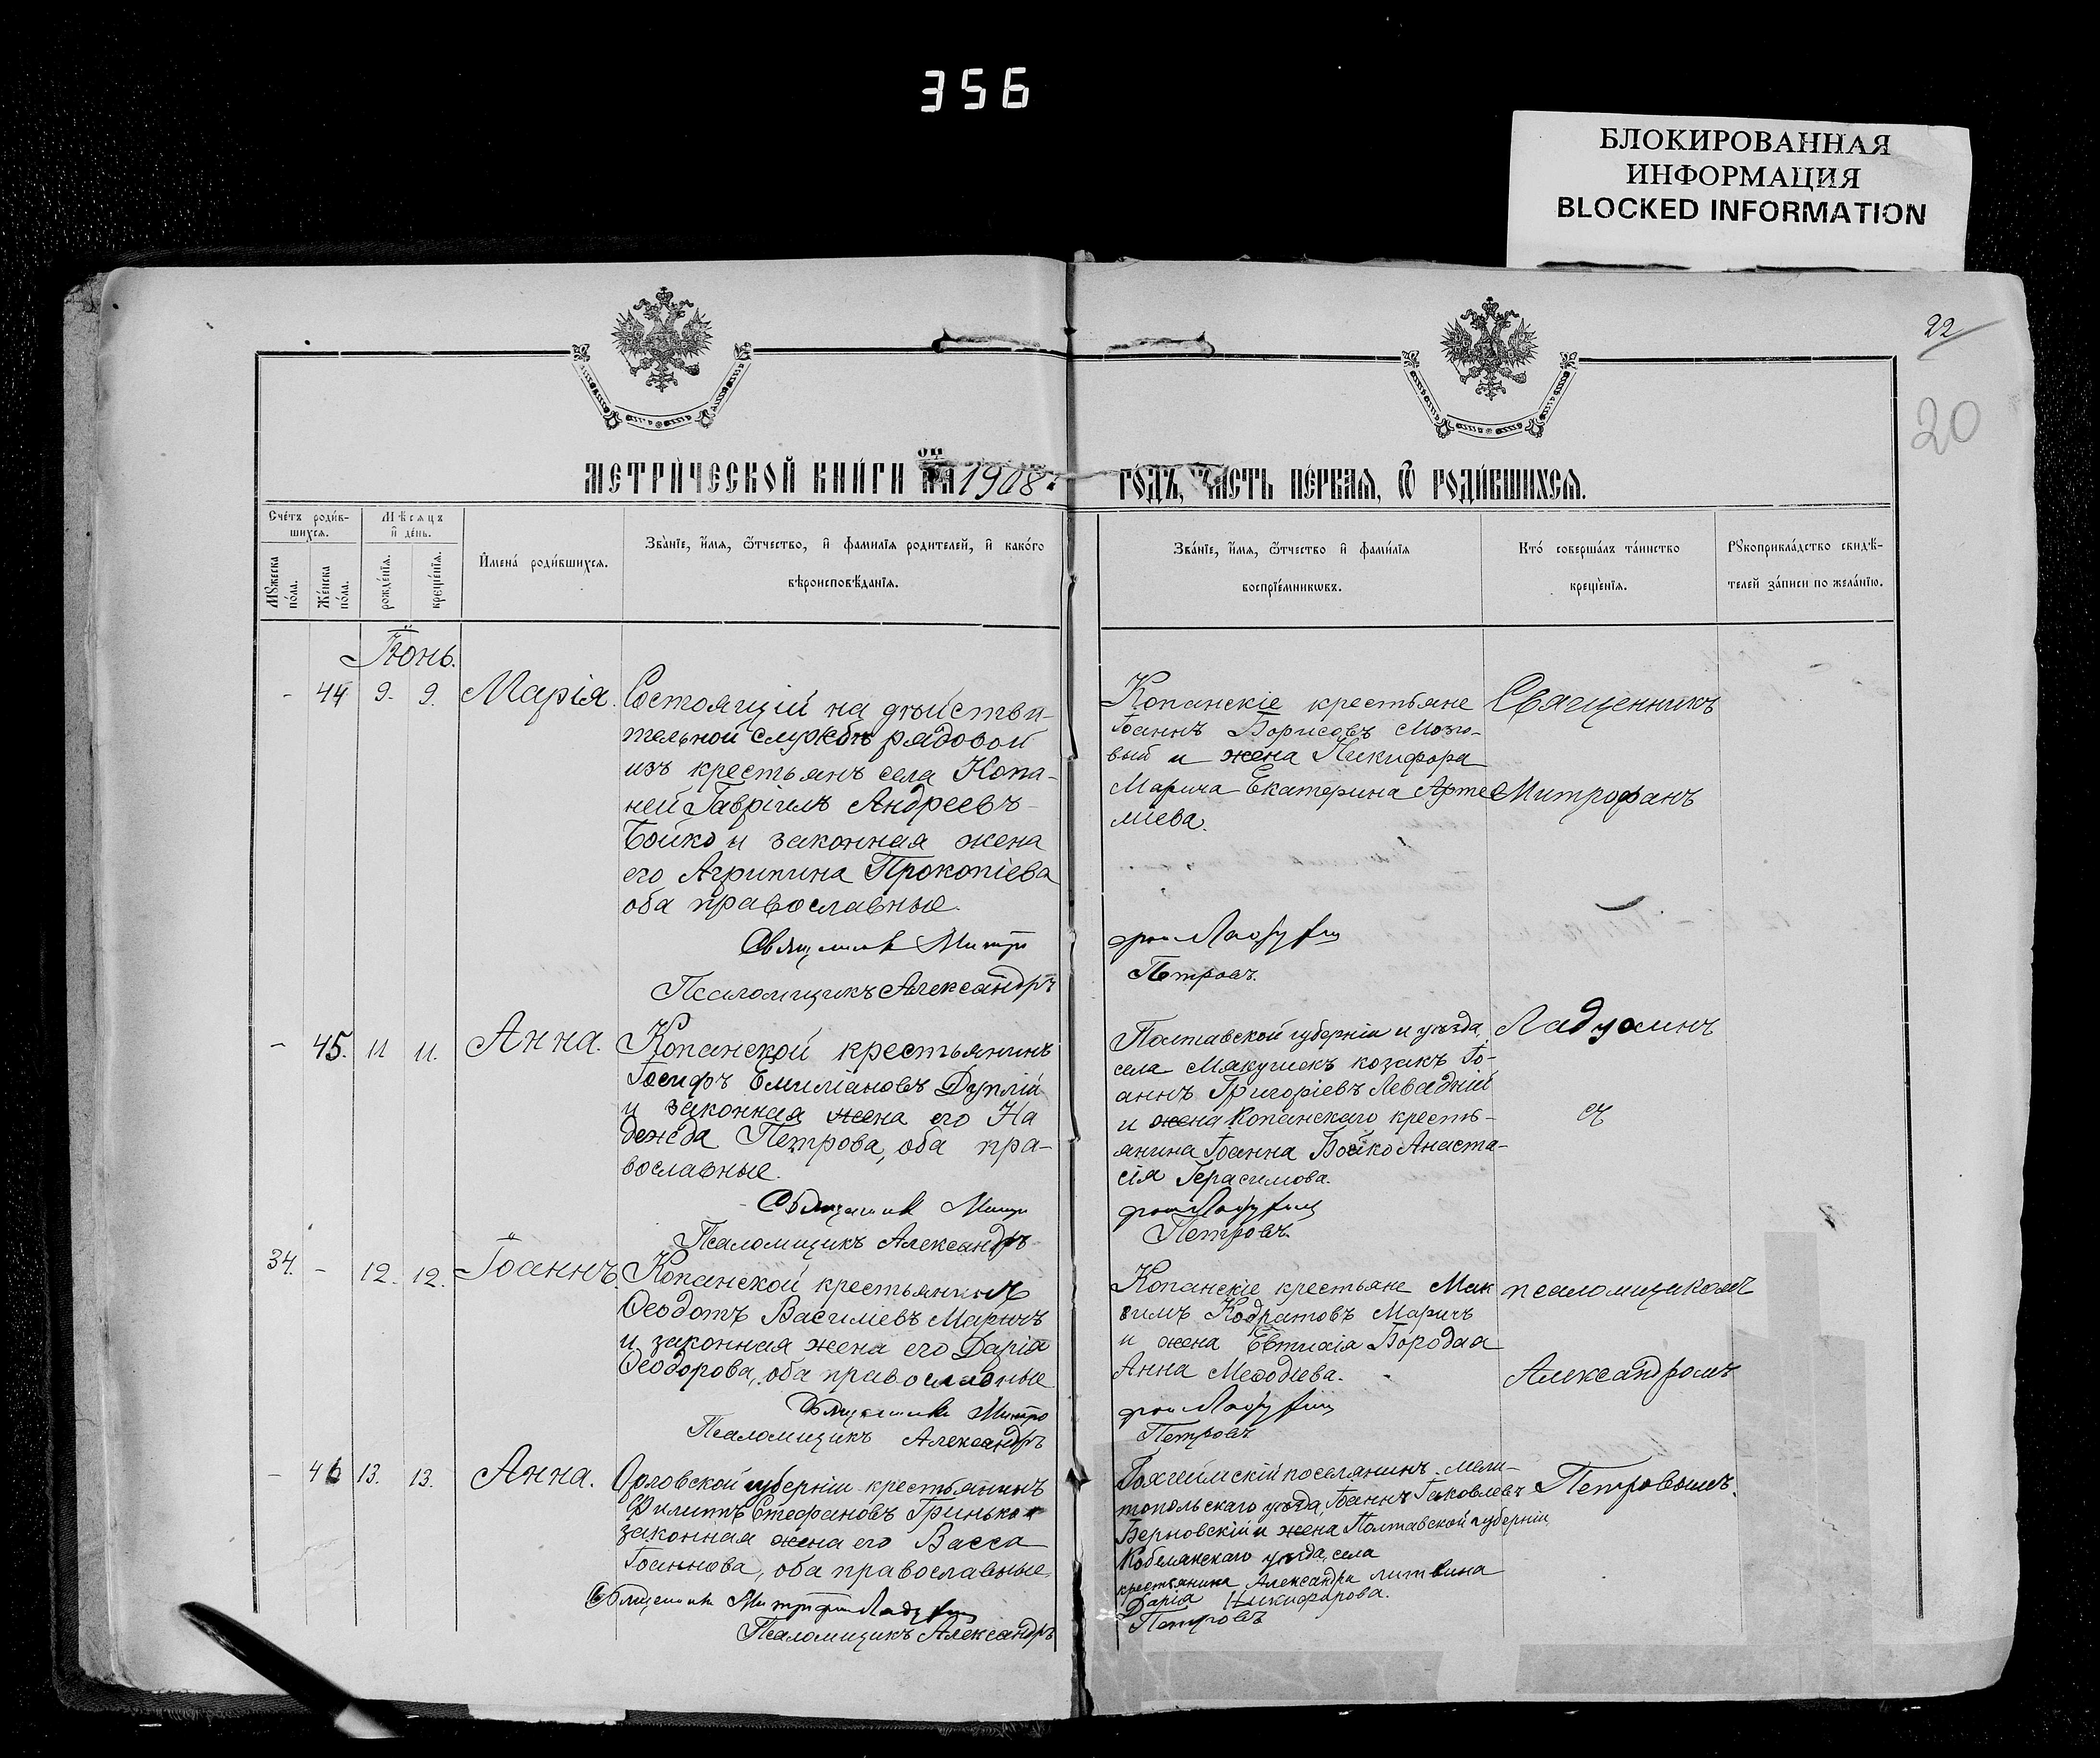 356
БЛОКИРОВАННАЯ
ИНФОРМАЦИЯ
BLOCKED INFORMATION
22
20
МЕТРИ́ЧЕСКОЙ КНИ́ГИ НА 1908 г.
ГО́ДЪ, ЧА́СТЬ ПЕ́РВАЯ, Ѿ РОДИ́ВШИХСЯ.
Сче́тъ роди́в-
шихся.
Мѣ́сяцъ
и҆ де́нь.
Мꙋ́жеска
по́ла.
Же́нска
по́ла.
рожде́нїя.
креще́нїя.
И҆мена́ роди́вшихся.
Зва́нїе, и҆́мя, ѻ҆́тчество, и҆ фами́лїя родителей, и҆ како́го
вѣроисповѣ́данїя.
Зва́нїе, и҆́мя, ѻ҆́тчество и҆ фами́лїя
воспрїе́мникѡвъ.
Кто́ соверша́лъ та́инство
креще́нїя.
Рꙋкоприкла́дство свидѣ́-
телей за́писи по жела́нїю.
Іюнь.
- 44 9. 9. Марія.
Состоящій на дѣйстви-
тельной службѣ рядовой
изъ крестьянъ села Копа-
ней Гавріилъ Андреевъ
Бойко и законная жена
его Агрипина Прокопіева
оба православные.
Священник Митро
Псаломщикъ Александръ
Копанскіе крестьяне
Іоаннъ Борисовъ Мозго-
вый и жена Никифора
Марича Екатерина Арте
міева.
фан Ладухин
Петровъ.
Священникъ
Митрофанъ
- 45. 11 11. Анна.
Копанской крестьянинъ
Іосифъ Емиліановъ Дуплій
и законная жена его На
дежда Петрова, оба пра-
вославные.
Священник Митро
Псаломщикъ Александръ
Полтавской губерніи и уѣзда,
села Мякушекъ козакъ Іо-
аннъ Григоріевъ Левадній
и жена Копанскаго кресть-
янина Іоанна Бойко Анаста-
сія Герасимова.
фан Ладухин
Петровъ.
Ладухинъ
съ
34. - 12. 12. Іоаннъ.
Копанской крестьянинъ
Ѳеодотъ Василіевъ Маричъ
и законная жена его Дарія
Ѳеодорова, оба православные
Священник Митро
Псаломщикъ Александръ
Копанскіе крестьяне Мак
симъ Кодратовъ Маричъ
и жена Евтихія Бородая
Анна Меѳодіева.
фан Ладухин
Петровъ
псаломщикомъ
Александромъ
- 46 13. 13. Анна.
Орловской губерніи крестьянинъ
Филиппъ Стефановъ Гринько и
законная жена его Васса
Іоаннова, оба православные.
Священник Митрофан Ладухин
Псаломщикъ Александръ
поселянинъ, мели-
топольскаго уѣзда, Іоаннъ Іаковлевъ
Берновскій и жена Полтавской губерніи,
Кобелякскаго уѣзда, села
крестьянина Александра Литвина
Дарія Никифорова.
Петровъ
Петровымъ.